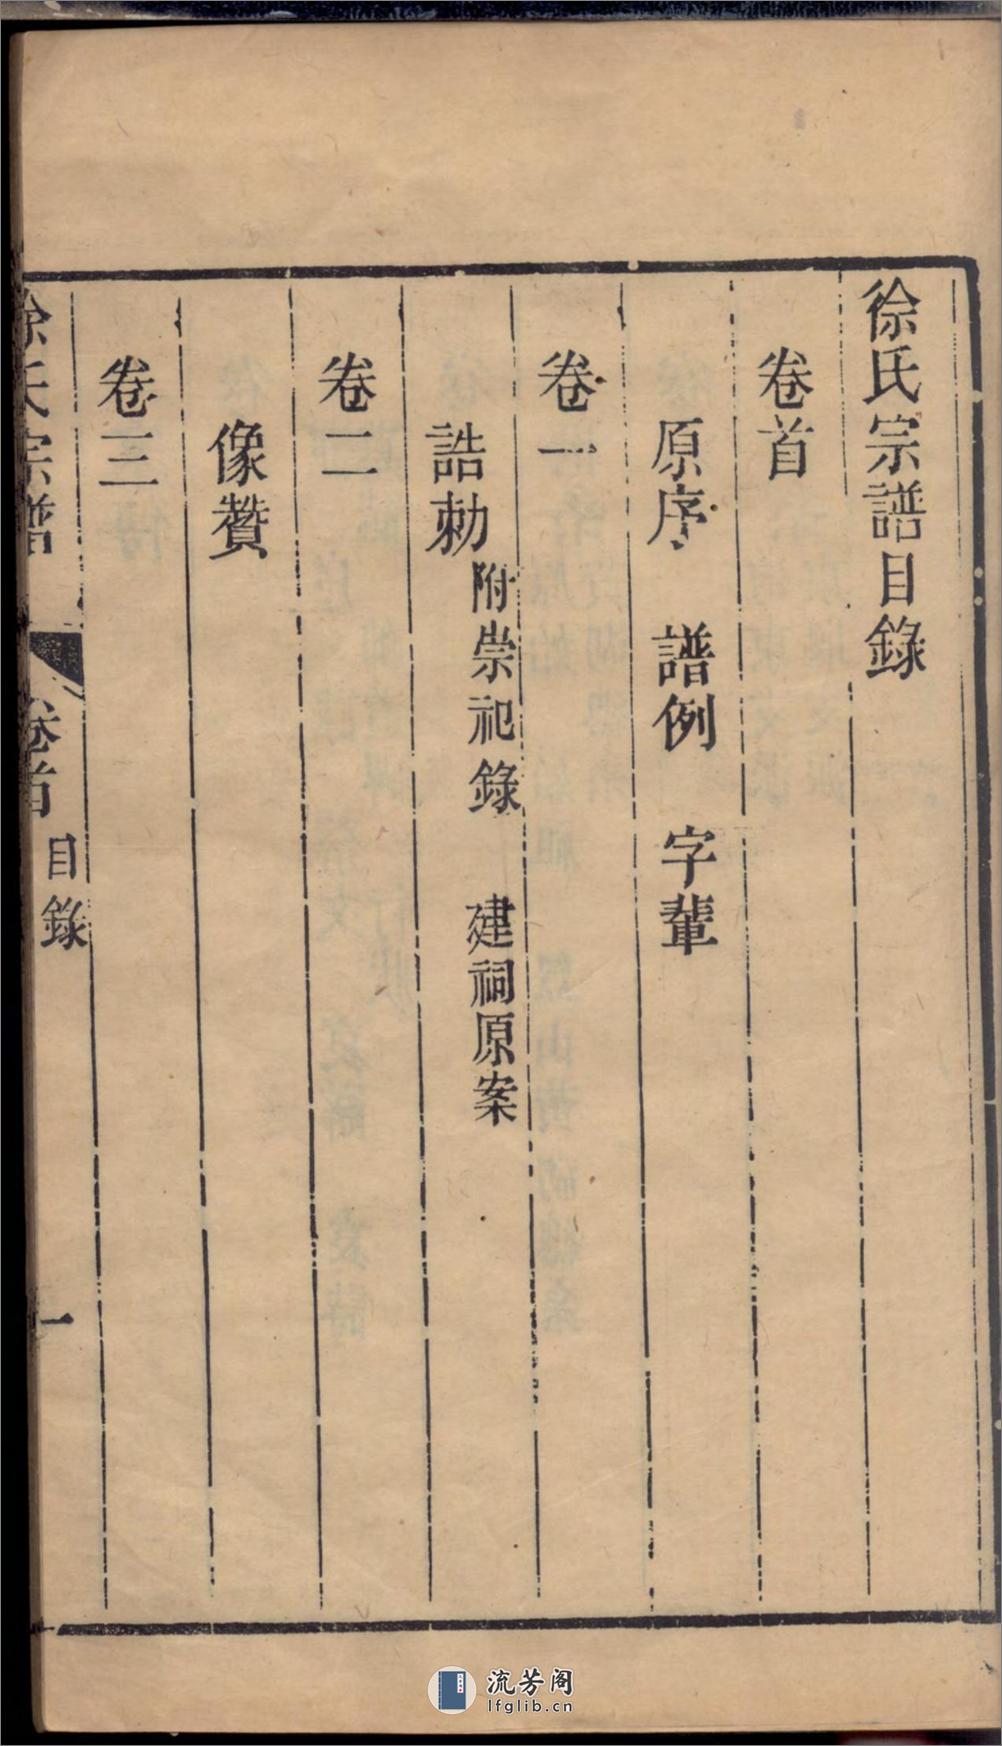 徐氏宗譜目錄
卷首
原序 譜例 字輩
卷一
誥勅 附崇祀錄 建祠原案
卷二
像贊
卷三
徐氏宗譜 卷首 目錄 一
流芳阁
lfglib.cn